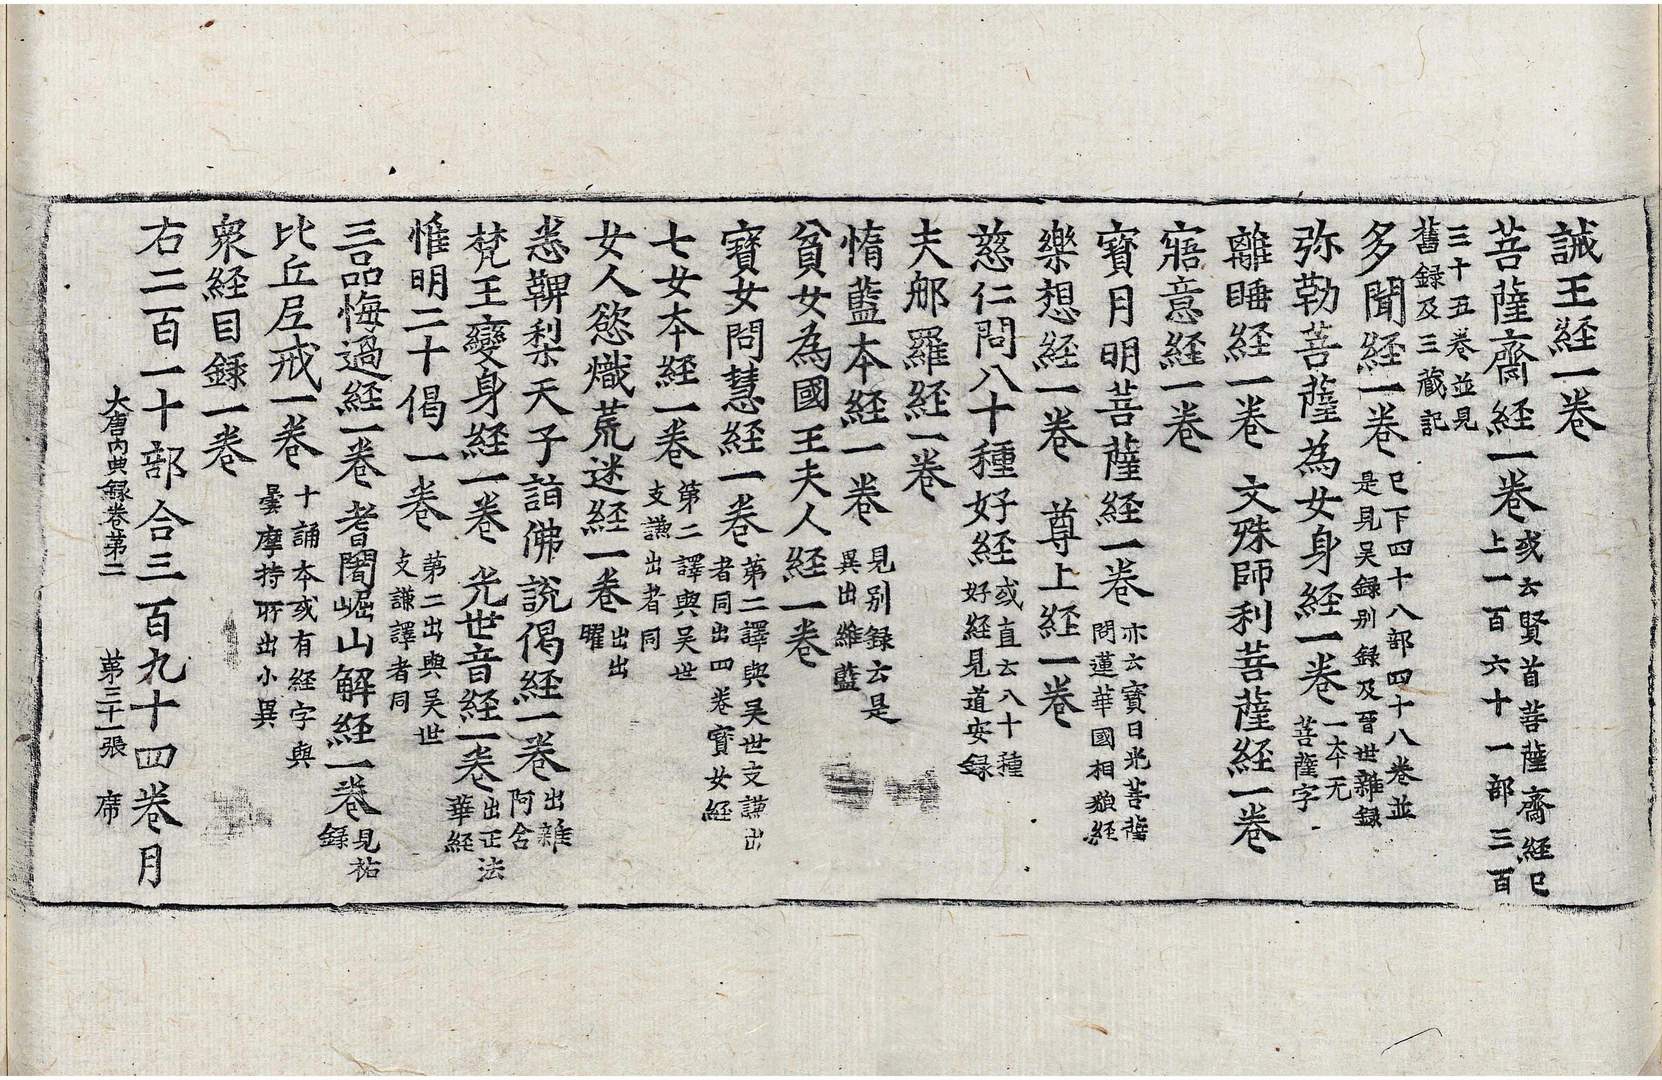 誡王経一卷
菩薩齋経一卷或云賢首菩薩齋経已
上一百六十一部三百
三十五卷並見
舊録及三藏記
多聞経一卷已下四十八部四十八卷並
是見吴録别録及晉世雜録
弥勒菩薩為女身経一卷一本无
菩薩字
離睡経一卷　文殊師利菩薩経一卷
寤意経一卷
寳月明菩薩経一卷亦云寳日光菩薩
問蓮華國相貌経
樂想経一卷　尊上経一卷
慈仁問八十種好経或直云八十種
好経見道安録
夫那羅経一卷
惰藍本経一卷見别録云是
異出維藍
貧女為國王夫人経一卷
寳女問慧経一卷第二譯與吴世支謙出
者同出四卷寳女経
七女本経一卷第二譯與吴世
支謙出者同
女人慾熾荒迷経一卷出出
曜
悉鞞梨天子詣佛説偈経一卷出雜
阿含
梵王變身経一卷　光世音経一卷出正法
華経
惟明二十偈一卷第二出與吴世
支謙譯者同
三品悔過経一卷　耆闍崛山解経一卷見祐
録
比丘尼戒一卷十誦本或有経字與
曇摩持所出小異
衆経目録一卷
右二百一十部合三百九十四卷月
大唐内典録卷第二　第三十一張　席